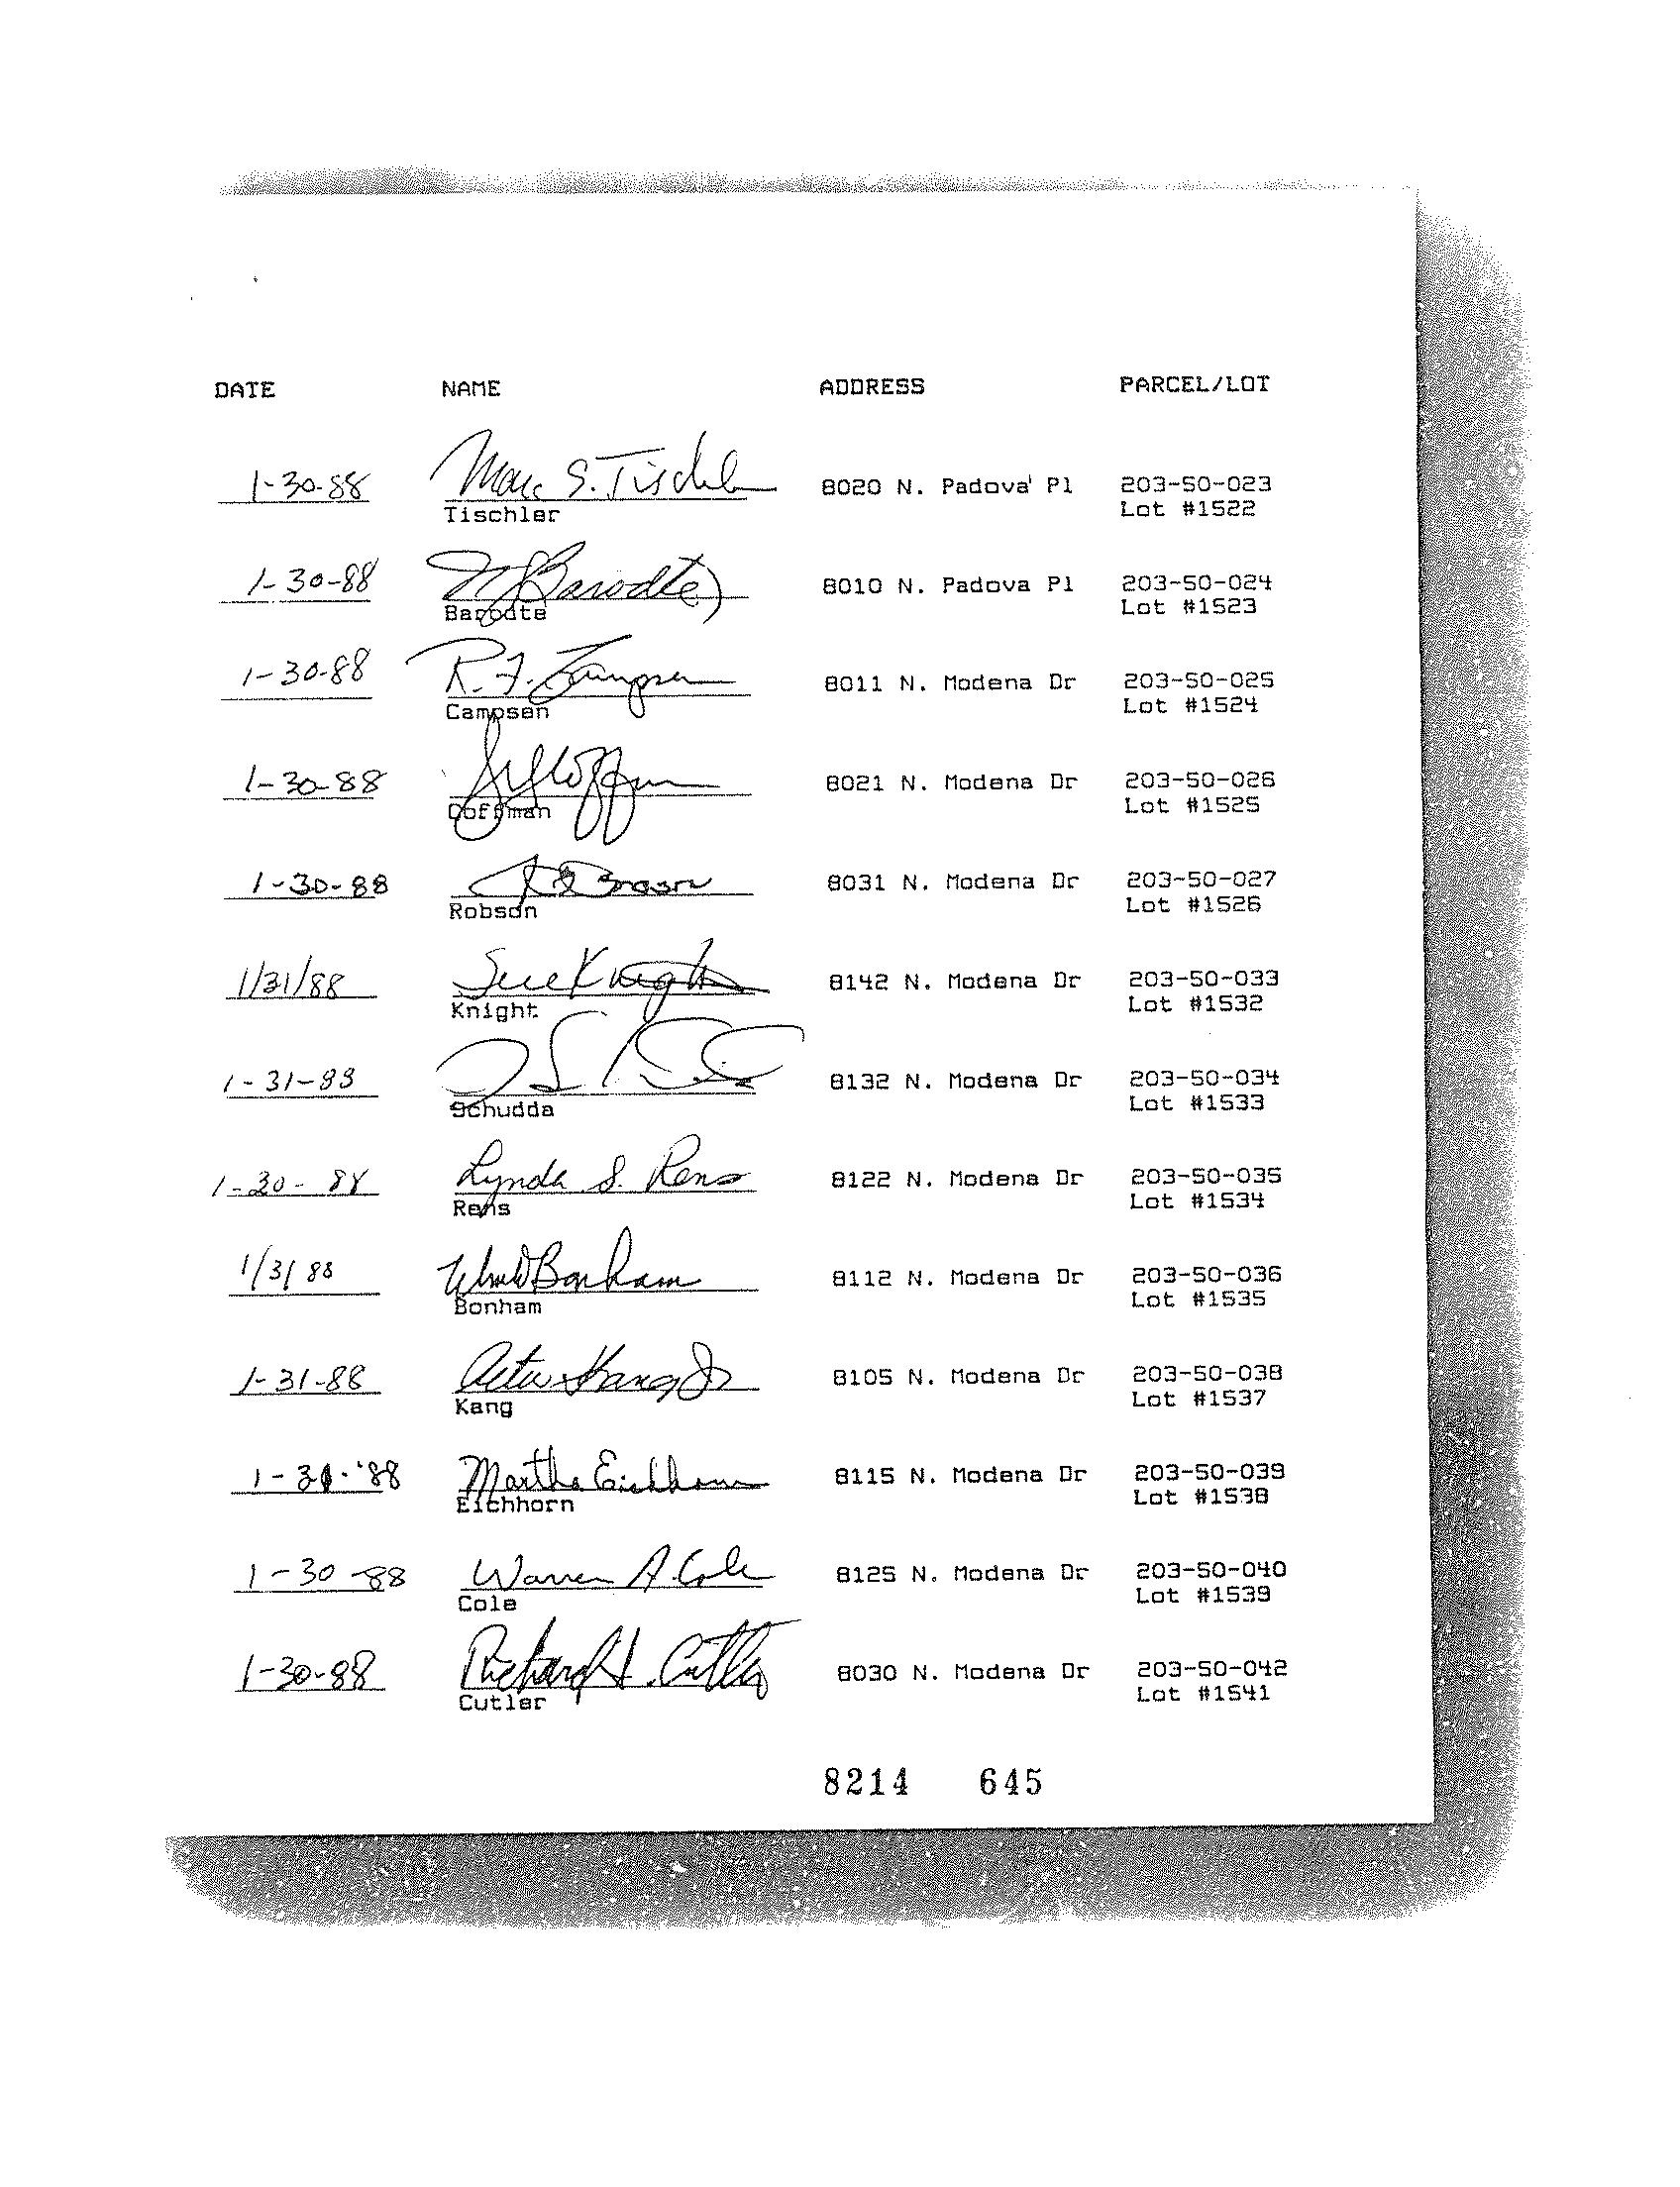 DATE NAME ADDRESS PARCEL/LOT
1-30-88 Marc S. Tischler 8020 N. Padova Pl 203-50-023
Tischler Lot #1522
1-30-88 Barodte 8010 N. Padova Pl 203-50-024
Barodte Lot #1523
1-30-88 R. F. Campsen 8011 N. Modena Dr 203-50-025
Campsen Lot #1524
1-30-88 Coffman 8021 N. Modena Dr 203-50-026
Coffman Lot #1525
1-30-88 8031 N. Modena Dr 203-50-027
Robson Lot #1526
1/31/88 Sue Knight 8142 N. Modena Dr 203-50-033
Knight Lot #1532
1-31-88 8132 N. Modena Dr 203-50-034
Schudda Lot #1533
1-30-88 Lynda S. Rens 8122 N. Modena Dr 203-50-035
Rens Lot #1534
1/31 88 Bonham 8112 N. Modena Dr 203-50-036
Bonham Lot #1535
1-31-88 Kang Jr 8105 N. Modena Dr 203-50-038
Kang Lot #1537
1-31-'88 Martha Eichhorn 8115 N. Modena Dr 203-50-039
Eichhorn Lot #1538
1-30-88 Warren A. Cole 8125 N. Modena Dr 203-50-040
Cole Lot #1539
1-30-88 Richard H. Cutler 8030 N. Modena Dr 203-50-042
Cutler Lot #1541
8214 645